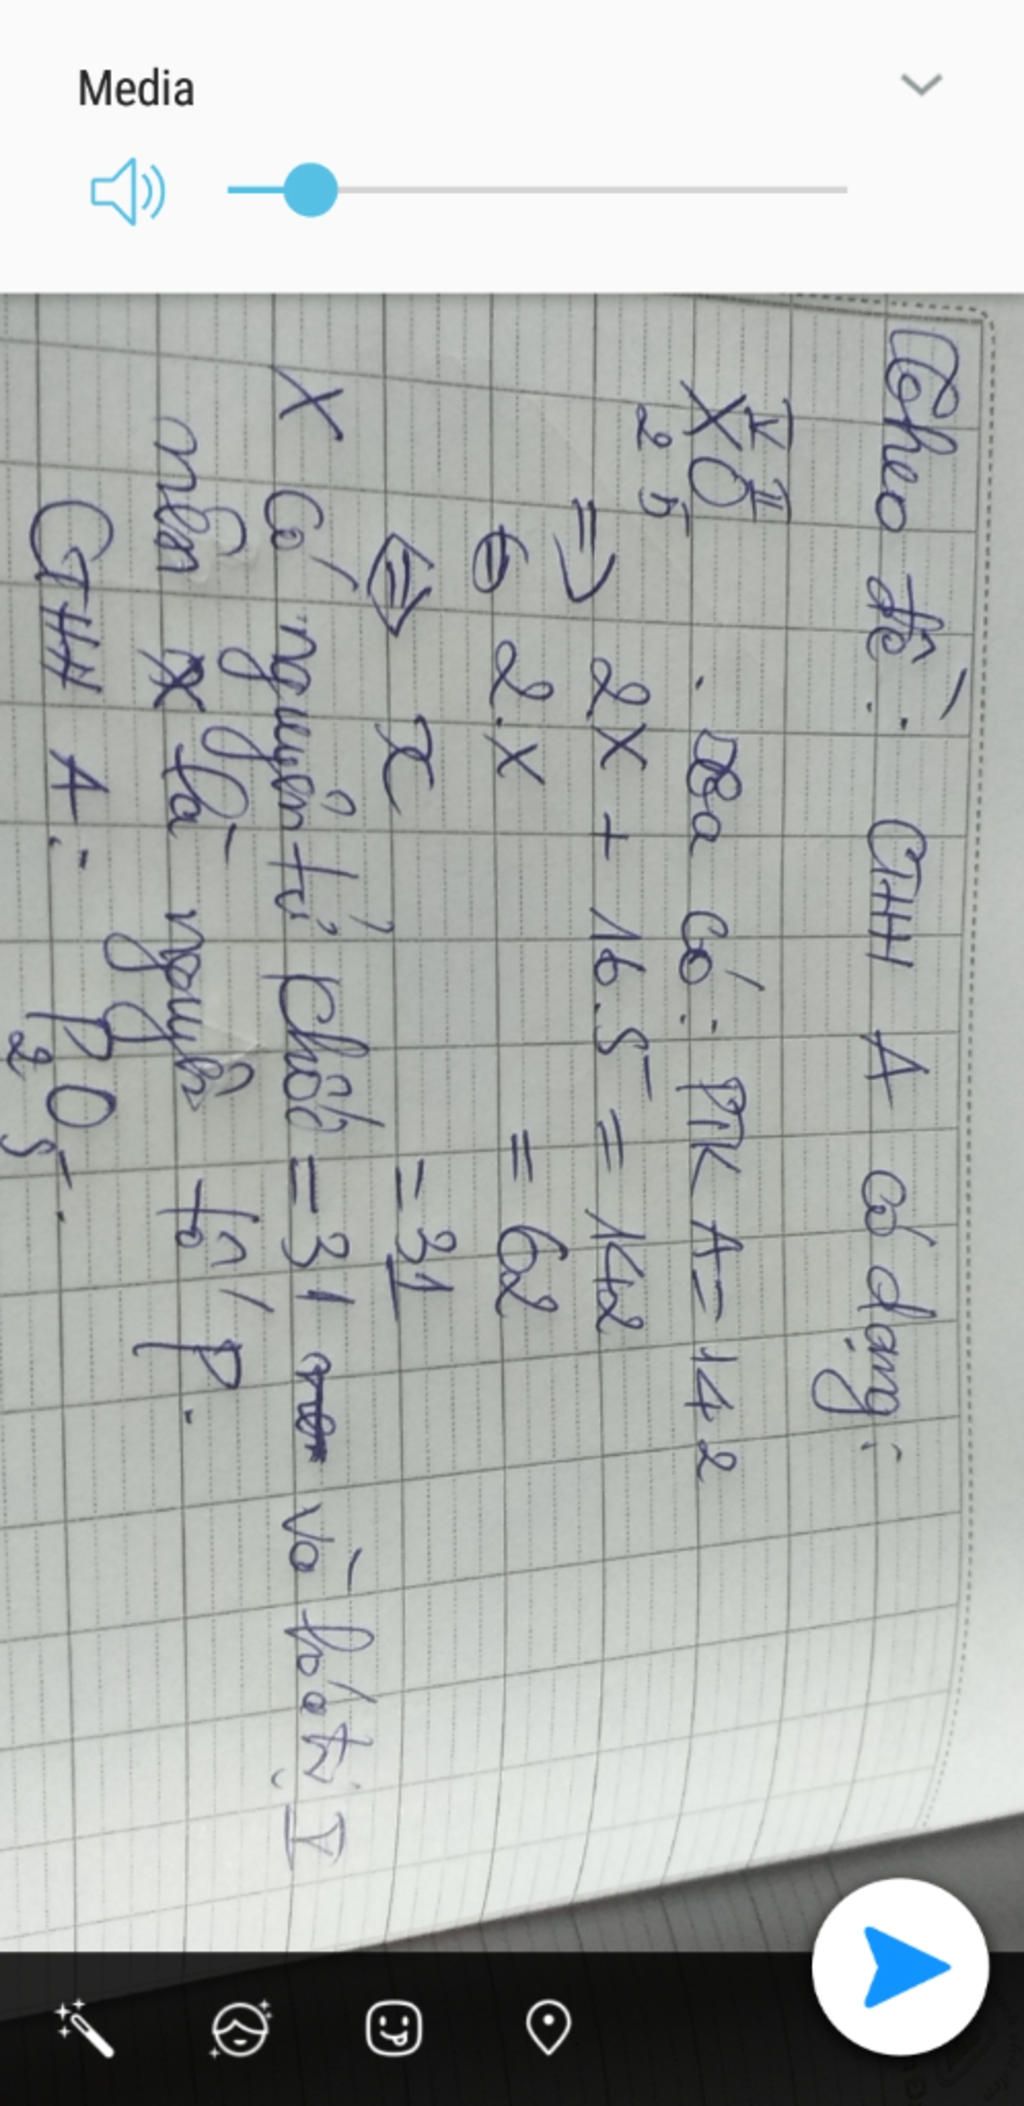 Media
Theo đề: CTHH A có dạng:
V II
X₂O₅
. Ta có: PTK A = 142
=> 2X + 16.5 = 142
2.X = 62
<=> x = 31
X có nguyên tử khối = 31 và hóa trị V
nên X là nguyên tố P.
CTHH A: P₂O₅.